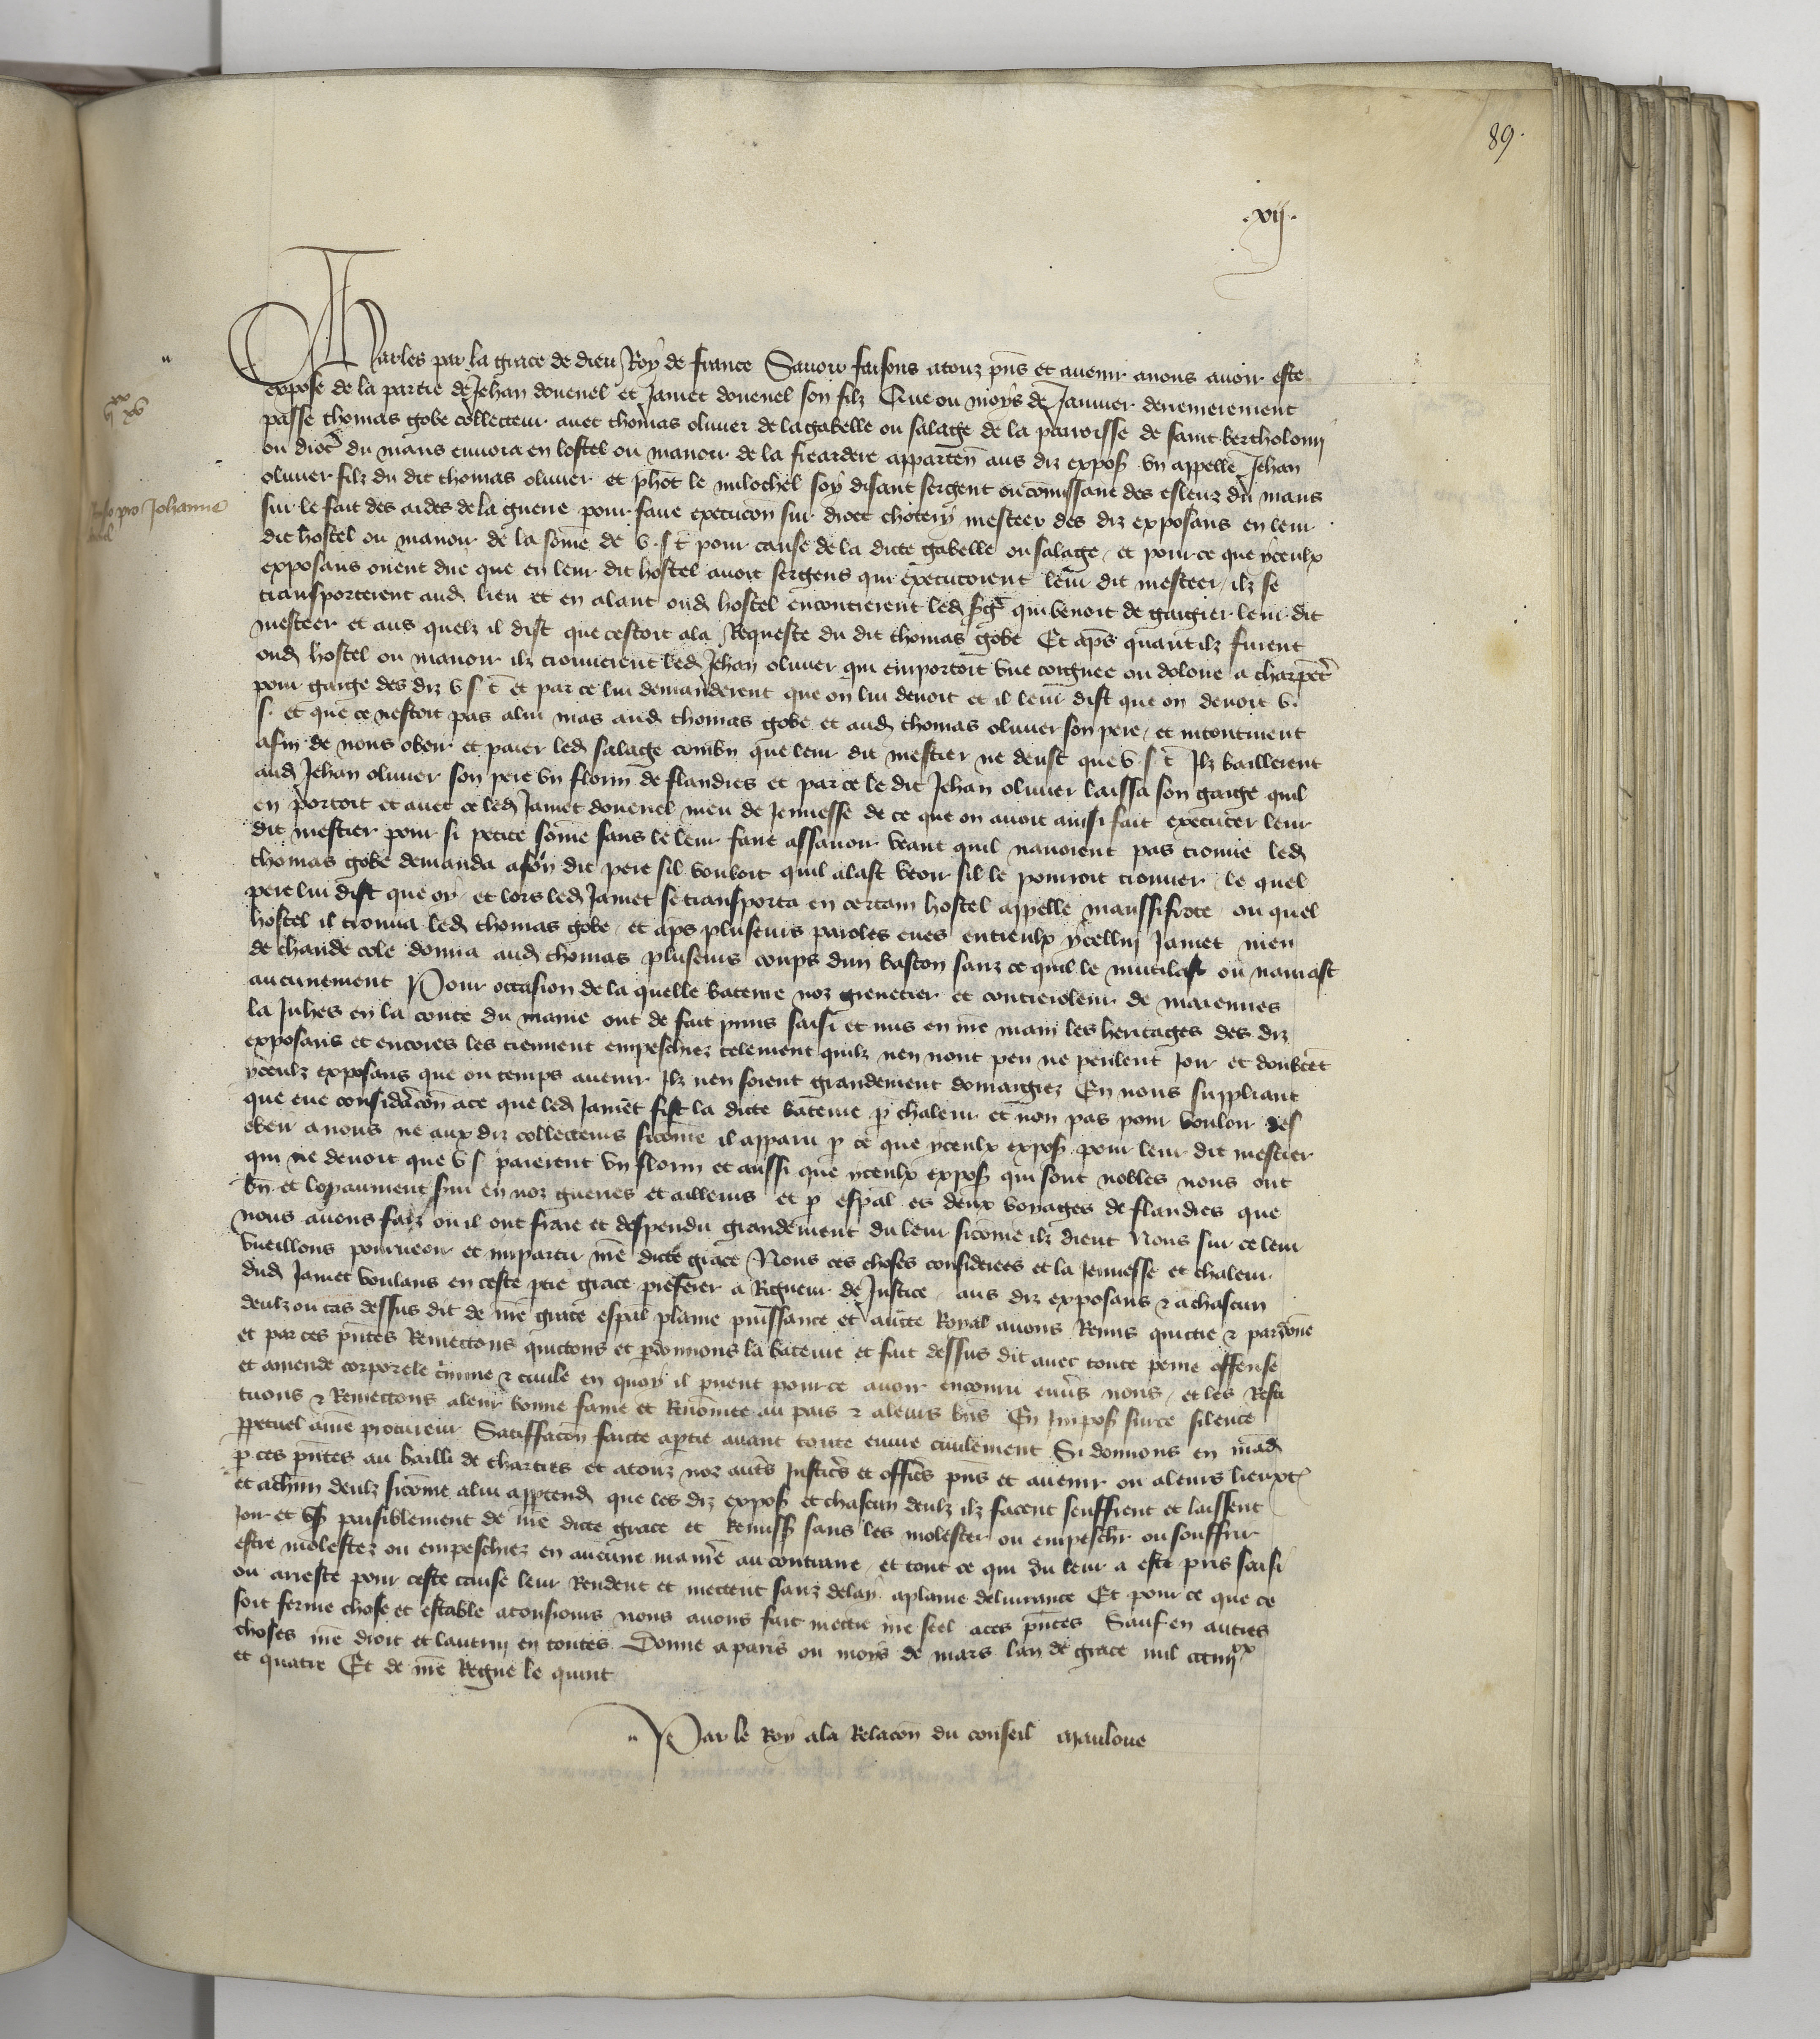 89.
.xij.
Charles par la grace de dieu Roy de france Savoir faisons atouz pns et avenir anous avoir este
expose de la partie de Jehan douenel et Jamet douenel son filz Que ou moys de Janvier derrenierement
passe thomas gobe collecteur avec thomas olivier de la gabelle ou salage de la parroisse de saint bertholomi
ou dioc du mans envoia en lostel ou manoir de la appartenn aus diz expos un appelle Jehan
olivier filz du dit thomas olivier et phot le soy disant sergent ou comissaire des esleuz du mans
sur le fait des aides de la guerre pour faire execucon sur mesteer des diz exposans en leur
dit hostel ou manoir de la some de v. s t pour cause de la dicte gabelle ou salage et pource que yceulx
exposans oirent dire que en leur dit hostel avoit sergens qui executoient leur dit mesteer ilz se
transporterent aud lieu et en alant oud hostel encontrerent led sergt qui venoit de gaigier leur dit
mesteer et aus quelz il dist que cestoit ala Requeste du dit thomas gobe Et aps quant ilz furent
oud hostel ou manoir ilz trouverent led Jehan olivier qui emportoit une coignee ou doloue a charpet
pour gaige des diz v s t et par ce lui demanderent que on lui devoit et il leur dist que on devoit v.
s. et que ce nestoit pas alui mas aud thomas gobe et aud thomas olivier son pere et incontinent
afin de nous obeir et paier led salage combn que leur dit mestier ne deust que v s t Ilz baillerent
aud Jehan olivier son pere un florin de flandres et par ce le dit Jehan olivier laissa son gaige quil
en portoit et avec ce led Jamet douenel meu de Jeunesse de ce que on avoit ainsi fait executer leur
dit mestier pour si petite some sans le leur faire assavoir veant quil navoient pas trouve led
thomas gobe demanda ason dit pere sil vouloit quil alast veoir sil le pourroit trouver le quel
pere lui dist que oy et lors led Jamet se transporta en certain hostel appelle ou quel
hostel il trouva led thomas gobe et aps pluseurs paroles eues entreulx ycellui Jamet meu
de chaude cole donna aud thomas pluseurs coups dun baston sanz ce quil le mutilast ou navrast
aucunement Pour occasion de la quelle bateure noz grenetier et contreroleur de maiennes
la Juhes en la conte du maine ont de fait prins saisi et mis en nre main les heritages des diz
exposans et encores les tiennent empeschiez telement quilz nen nont peu ne peulent Joir et doubtet
yceulz exposans que ou temps avenir Ilz nen soient grandement domaigiez En nous suppliant
que eue consideracon ace que led Jamet fist la dicte bateure p chaleur et non pas pour vouloir des
obeir a nous ne aux diz collecteurs sicome il apparu p ce que yceulx expos pour leur dit mestier
qui ne devoit que v s paierent un florin et aussi que yceulx expos qui sont nobles nous ont
bn et loyaument servi en noz guerres et ailleurs et p espal es deux voyages de flandres que
nous avons faiz ou il ont fraie et despendu grandement du leur sicome ilz dient Nous sur ce leur
vueillons pourveoir et impartir nre dicte grace Nous ces choses considerees et la Jeunesse et chaleur
dud Jamet voulans en ceste ptie grace preferer a Rigueur de Justice aus diz exposans & a chascun
deulz ou cas dessus dit de nre grace espal plaine puissance et aucte Royal avons Remis quictie & pardone
et par ces pntes Remectons quictons et pdonnons la bateure et fait dessus dit avec toute peine offense
et amende corporele crimine & civile en quoy il puent pource avoir encouru envs nous et les Resti
tuons & Remectons aleur bonne fame et Renomee au pais & aleurs bns En Impos surce silence
ppetuel anre procureur Satiffacon faicte aptie avant toute euvre civilement Si donnons en mad
p ces pntes au bailli de chartres et atouz noz autres Justics et offics pns et avenir ou aleurs lieuxt
et achun deulz sicome alui apptend que les diz expos et chascun deulz ilz facent seuffrent et laissent
Joir et us paisiblement de nre dicte grace et Remiss sans les molester ou empeschr ou souffrir
estre molestez ou empeschiez en aucune manie au contraire et tout ce qui du leur a este pris saisi
ou arreste pour ceste cause leur Rendent et mectent sanz delay aplaine delivrance Et pour ce que ce
soit ferme chose et estable atousiours nous avons fait mectre nre seel aces pntes Sauf en autres
choses nre droit et lautruy en toutes Donne a paris ou moys de mars lan de grace mil ccciiijxx
et quatre Et de nre Regne le quint
Par le Roy ala Relacon du conseil Mauloue
pro Johanne